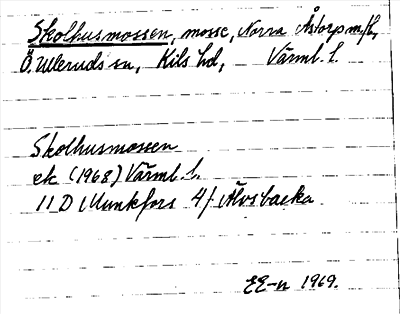 Skolhusmossen, mosse, Norra Åstorp m.fl.,
Ö. Ulleruds sn, Kils hd, Värml. l.
Skolhusmossen
ek (1968) Värml. l.
11 D Munkfors 4f Älvsbacka
EE-n 1969.